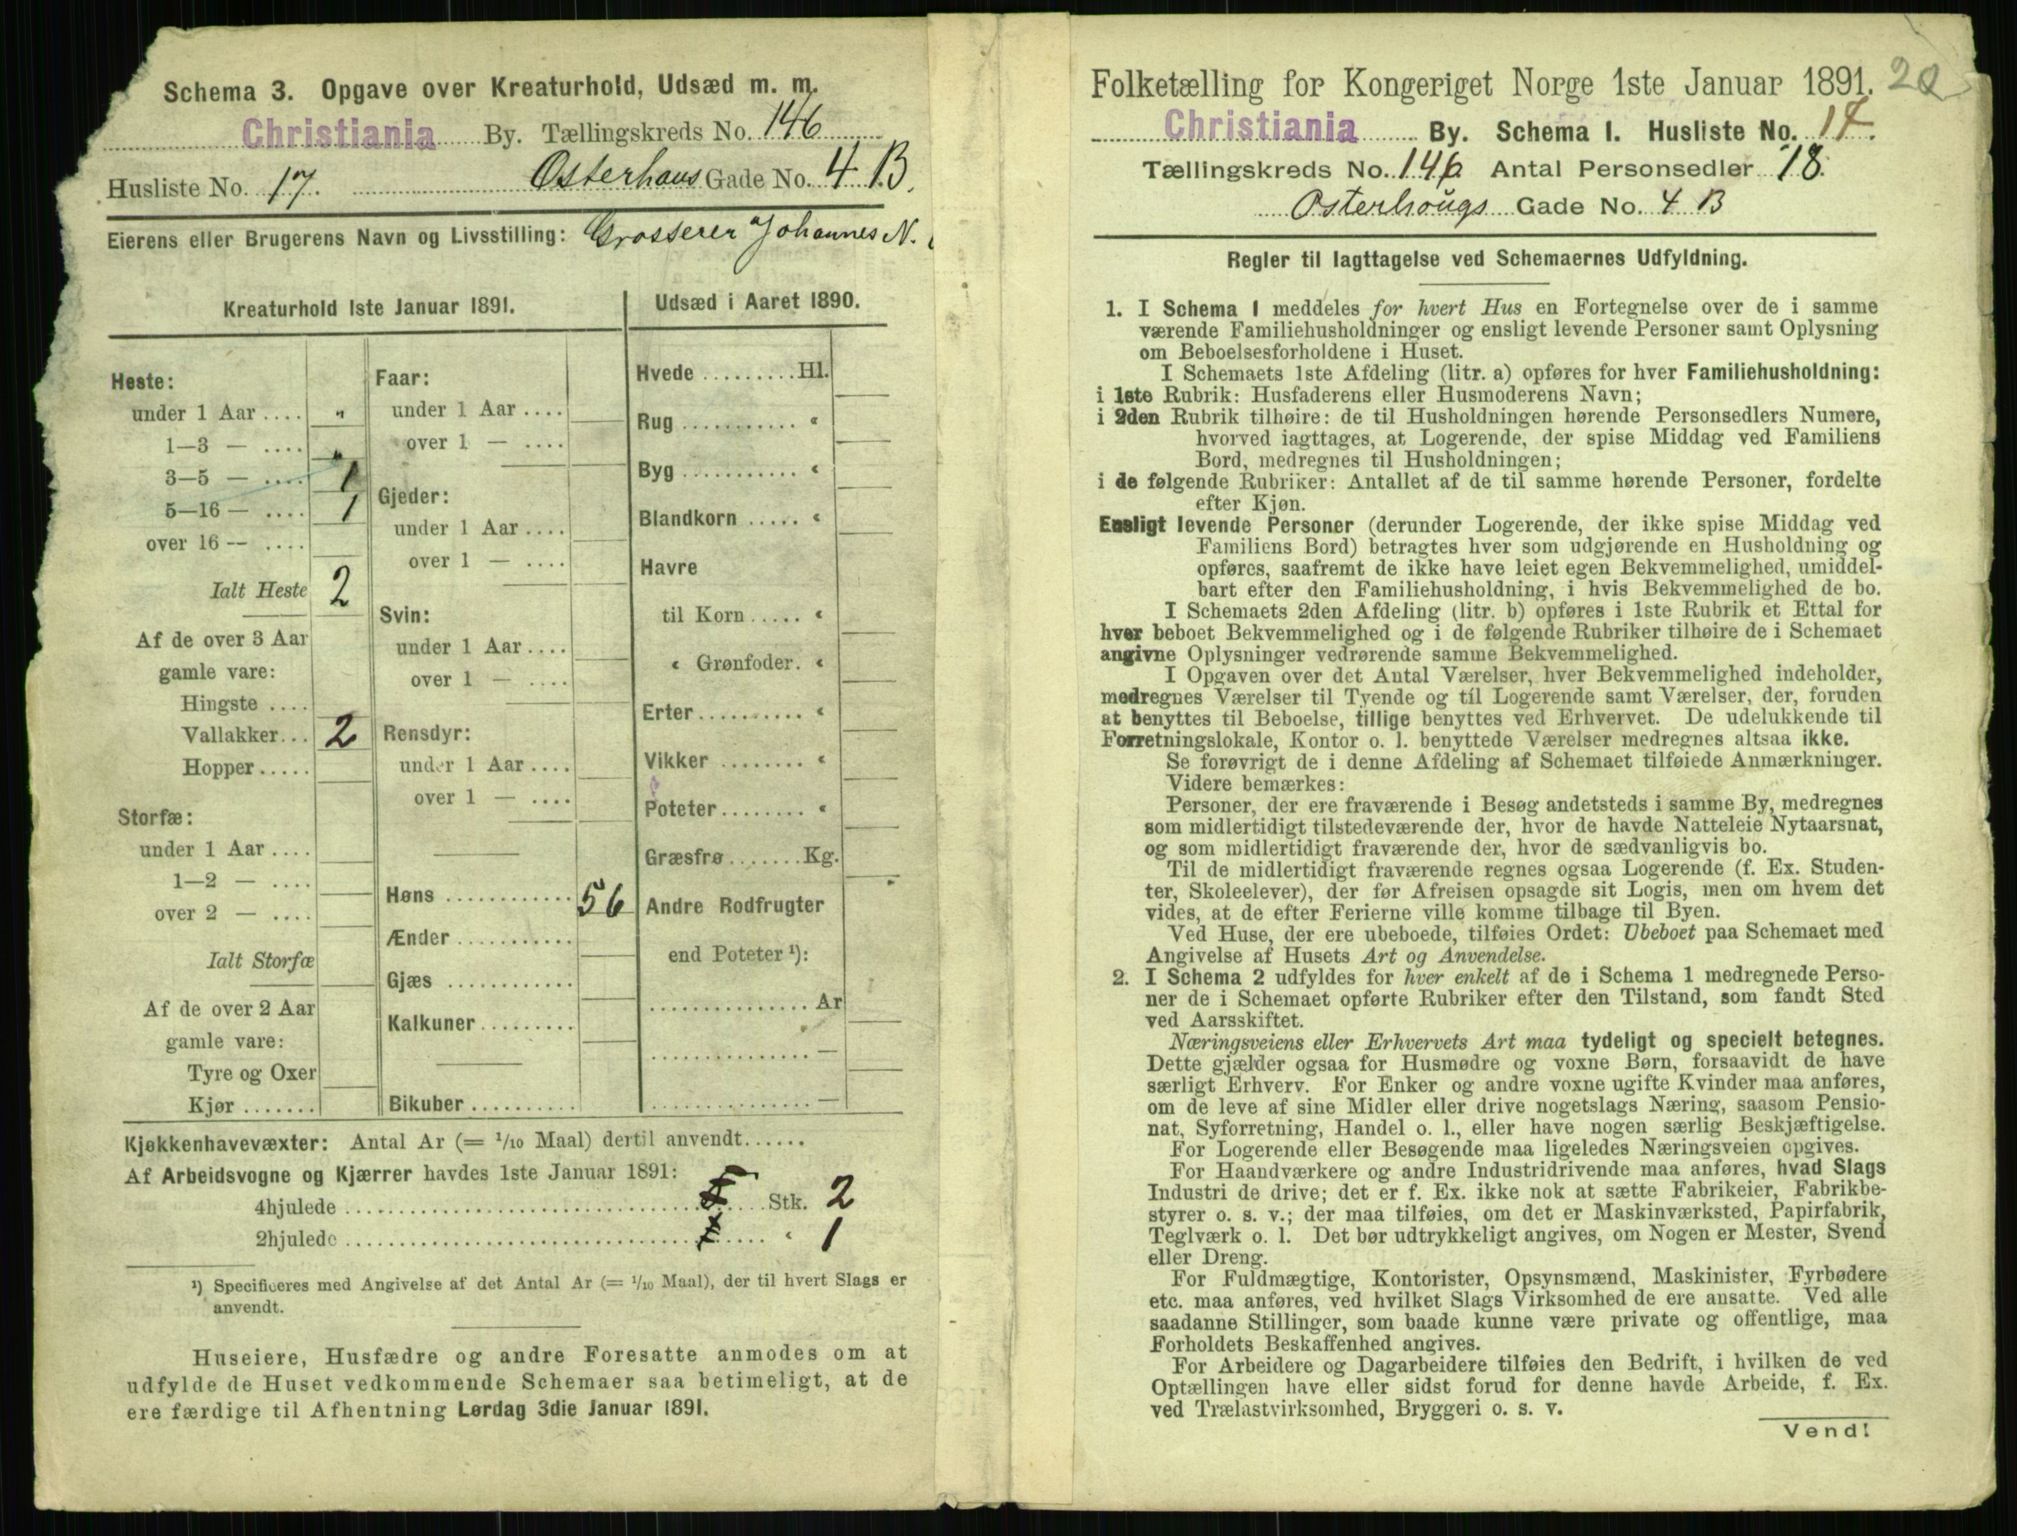 Schema 3. Opgave over Kreaturhold, Udsæd m. m.
Christiania By. Tællingskreds No. 146
Husliste No. 17. Osterhaus Gade No. 4 B.
Eierens eller Brugerens Navn og Livsstilling: Grosserer Johannes N.
Kreaturhold 1ste Januar 1891.
Heste:
under 1 Aar .... "
1—3 — .... "
3—5 — .... 1
5—16 — .... 1
over 16 — ....
Ialt Heste 2
Af de over 3 Aar
gamle vare:
Hingste ....
Vallakker... 2
Hopper.....
Storfæ:
under 1 Aar ....
1—2 — ....
over 2 — ....
Ialt Storfæ
Af de over 2 Aar
gamle vare:
Tyre og Oxer
Kjør .......
Faar:
under 1 Aar ....
over 1 — ....
Gjeder:
under 1 Aar ....
over 1 — ....
Svin:
under 1 Aar ....
over 1 — ....
Rensdyr:
under 1 Aar ....
over 1 — ....
Høns ............ 56
Ænder ...........
Gjæs ............
Kalkuner.........
Bikuber ..........
Udsæd i Aaret 1890.
Hvede ......... Hl.
Rug ........... "
Byg ........... "
Blandkorn ..... "
Havre
til Korn ..... "
" Grønfoder. "
Erter.......... "
Vikker ........ "
Poteter........ "
Græsfrø ....... Kg.
Andre Rodfrugter
end Poteter ¹):
............... Ar
............... —
............... —
Kjøkkenhavevæxter: Antal Ar (= 1/10 Maal) dertil anvendt......
Af Arbeidsvogne og Kjærrer havdes 1ste Januar 1891:
4hjulede ........ Stk. 2
2hjulede ........ " 1
¹) Specificeres med Angivelse af det Antal Ar (= 1/10 Maal), der til hvert Slags er
anvendt.
Huseiere, Husfædre og andre Foresatte anmodes om at
udfylde de Huset vedkommende Schemaer saa betimeligt, at de
ere færdige til Afhentning Lørdag 3die Januar 1891.
Folketælling for Kongeriget Norge 1ste Januar 1891. 20
Christiania By. Schema 1. Husliste No. 17.
Tællingskreds No. 146 Antal Personsedler 18.
Osterhougs Gade No. 4 B
Regler til Iagttagelse ved Schemaernes Udfyldning.
1. I Schema 1 meddeles for hvert Hus en Fortegnelse over de i samme
værende Familiehusholdninger og ensligt levende Personer samt Oplysning
om Beboelsesforholdene i Huset.
I Schemaets 1ste Afdeling (litr. a) opføres for hver Familiehusholdning:
i 1ste Rubrik: Husfaderens eller Husmoderens Navn;
i 2den Rubrik tilhøire: de til Husholdningen hørende Personsedlers Numere,
hvorved iagttages, at Logerende, der spise Middag ved Familiens
Bord, medregnes til Husholdningen;
i de følgende Rubriker: Antallet af de til samme hørende Personer, fordelte
efter Kjøn.
Ensligt levende Personer (derunder Logerende, der ikke spise Middag ved
Familiens Bord) betragtes hver som udgjørende en Husholdning og
opføres, saafremt de ikke have leiet egen Bekvemmelighed, umiddel-
bart efter den Familiehusholdning, i hvis Bekvemmelighed de bo.
I Schemaets 2den Afdeling (litr. b) opføres i 1ste Rubrik et Ettal for
hver beboet Bekvemmelighed og i de følgende Rubriker tilhøire de i Schemaet
angivne Oplysninger vedrørende samme Bekvemmelighed.
I Opgaven over det Antal Værelser, hver Bekvemmelighed indeholder,
medregnes Værelser til Tyende og til Logerende samt Værelser, der, foruden
at benyttes til Beboelse, tillige benyttes ved Erhvervet. De udelukkende til
Forretningslokale, Kontor o. l. benyttede Værelser medregnes altsaa ikke.
Se forøvrigt de i denne Afdeling af Schemaet tilføiede Anmærkninger.
Videre bemærkes:
Personer, der ere fraværende i Besøg andetsteds i samme By, medregnes
som midlertidigt tilstedeværende der, hvor de havde Natteleie Nytaarsnat,
og som midlertidigt fraværende der, hvor de sædvanligvis bo.
Til de midlertidigt fraværende regnes ogsaa Logerende (f. Ex. Studen-
ter, Skoleelever), der før Afreisen opsagde sit Logis, men om hvem det
vides, at de efter Ferierne ville komme tilbage til Byen.
Ved Huse, der ere ubeboede, tilføies Ordet: Ubeboet paa Schemaet med
Angivelse af Husets Art og Anvendelse.
2. I Schema 2 udfyldes for hver enkelt af de i Schema 1 medregnede Perso-
ner de i Schemaet opførte Rubriker efter den Tilstand, som fandt Sted
ved Aarsskiftet.
Næringsveiens eller Erhvervets Art maa tydeligt og specielt betegnes.
Dette gjælder ogsaa for Husmødre og voxne Børn, forsaavidt de have
særligt Erhverv. For Enker og andre voxne ugifte Kvinder maa anføres,
om de leve af sine Midler eller drive nogetslags Næring, saasom Pensio-
nat, Syforretning, Handel o. l., eller have nogen særlig Beskjæftigelse.
For Logerende eller Besøgende maa ligeledes Næringsveien opgives.
For Haandværkere og andre Industridrivende maa anføres, hvad Slags
Industri de drive; det er f. Ex. ikke nok at sætte Fabrikeier, Fabrikbe-
styrer o. s. v.; der maa tilføies, om det er Maskinværksted, Papirfabrik,
Teglværk o. l. Det bør udtrykkeligt angives, om Nogen er Mester, Svend
eller Dreng.
For Fuldmægtige, Kontorister, Opsynsmænd, Maskinister, Fyrbødere
etc. maa anføres, ved hvilket Slags Virksomhed de ere ansatte. Ved alle
saadanne Stillinger, som baade kunne være private og offentlige, maa
Forholdets Beskaffenhed angives.
For Arbeidere og Dagarbeidere tilføies den Bedrift, i hvilken de ved
Optællingen have eller sidst forud for denne havde Arbeide, f. Ex.
ved Trælastvirksomhed, Bryggeri o. s. v.
Vend!